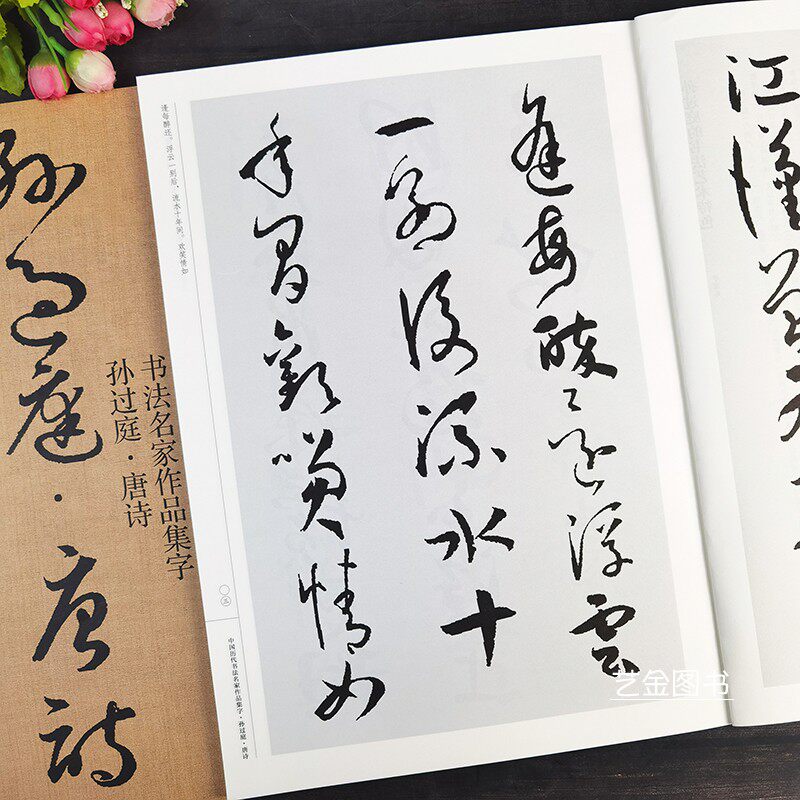 孙過庭·唐詩
书法名家作品集字
孙过庭·唐诗
江漢曾
逢每醉還浮雲
一别後流水十
年間歡笑情如
逢每醉还。浮云一别后，流水十年间。欢笑情如
中国历代书法名家作品集字·孙过庭·唐诗
艺金图书